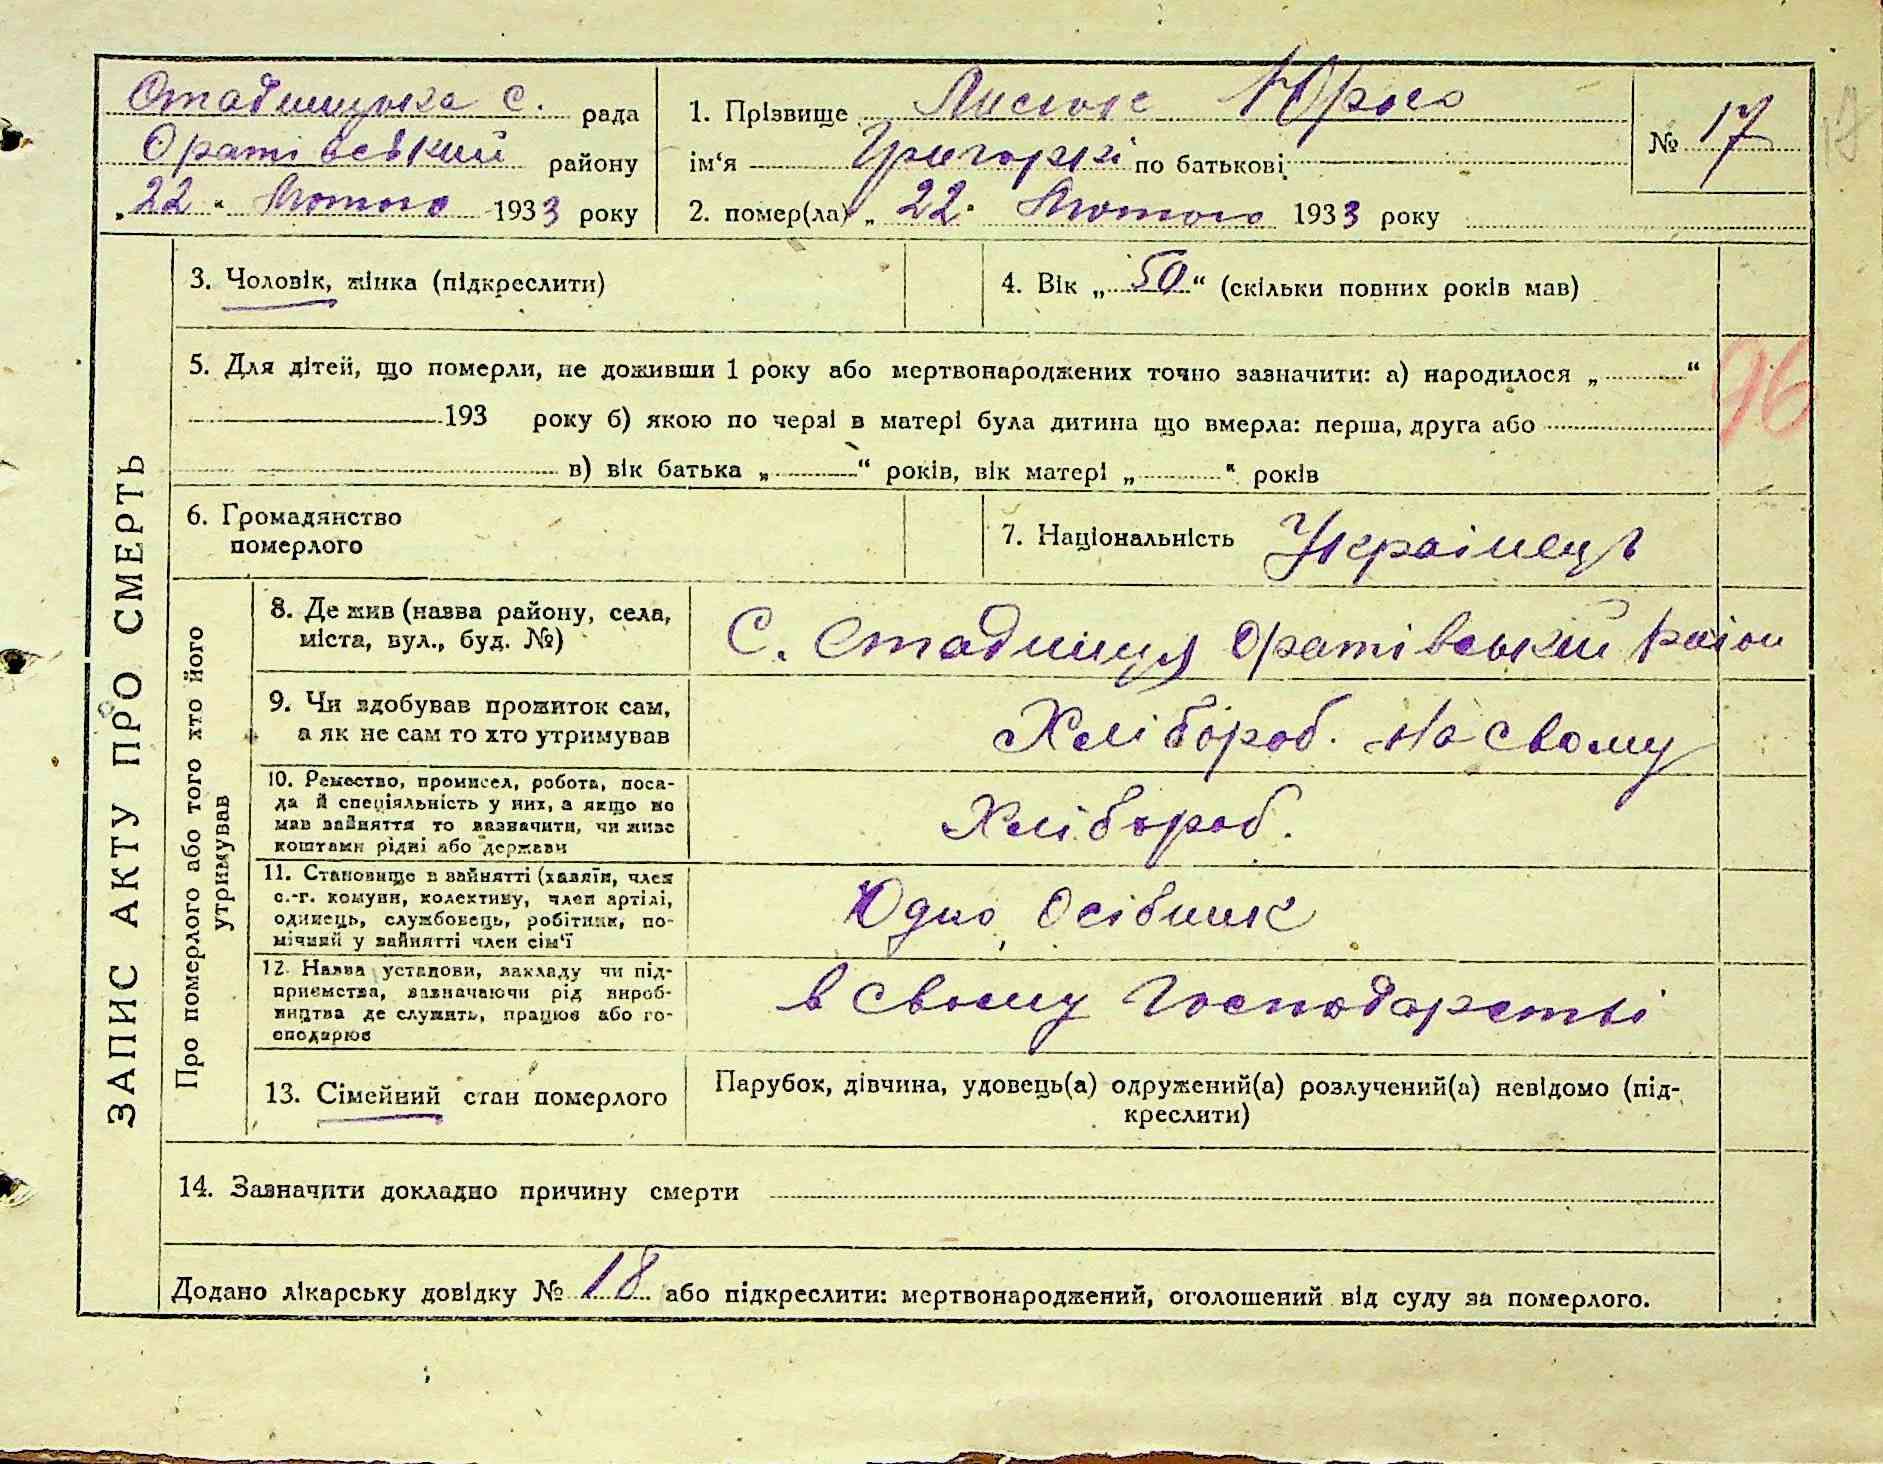 Стадницька с. рада
Оратівський району
„22“ Лютого 1933 року
1. Прізвище Лисюк Юрко
ім‘я Григоркі по батькові
2. помер(ла) „22“ Лютого 1933 року
№ 17
17
ЗАПИС АКТУ ПРО СМЕРТЬ
3. Чоловік, жінка (підкреслити)
4. Вік „50“ (скільки повних років мав)
5. Для дітей, що померли, не доживши 1 року або мертвонароджених точно зазначити: а) народилося „ “
193 року б) якою по черзі в матері була дитина що вмерла: перша, друга або
в) вік батька „ “ років, вік матері „ “ років
96
6. Громадянство
померлого
7. Національність Украінець
Про померлого або того хто його
утримував
8. Де жив (назва району, села,
міста, вул., буд. №)
С. Стадниця Оратівський район
9. Чи здобував прожиток сам,
а як не сам то хто утримував
Хлібороб. На свому
10. Ремество, промисел, робота, поса-
да й спеціяльність у них, а якщо не
мав зайняття то зазначити, чи живе
коштами рідні або держави
Хлібороб.
11. Становище в зайнятті (хазяїн, член
с.-г. комуни, колективу, член артілі,
одинець, службовець, робітник, по-
мічний у зайнятті член сім‘ї
Юдно, Осібник
12. Назва установи, закладу чи під-
приємства, зазначаючи рід вироб-
ництва де служить, працює або го-
сподарює
в свому Господарстві
13. Сімейний стан померлого
Парубок, дівчина, удовець(а) одружений(а) розлучений(а) невідомо (під-
креслити)
14. Зазначити докладно причину смерти
Додано лікарську довідку № 18 або підкреслити: мертвонароджений, оголошений від суду за померлого.